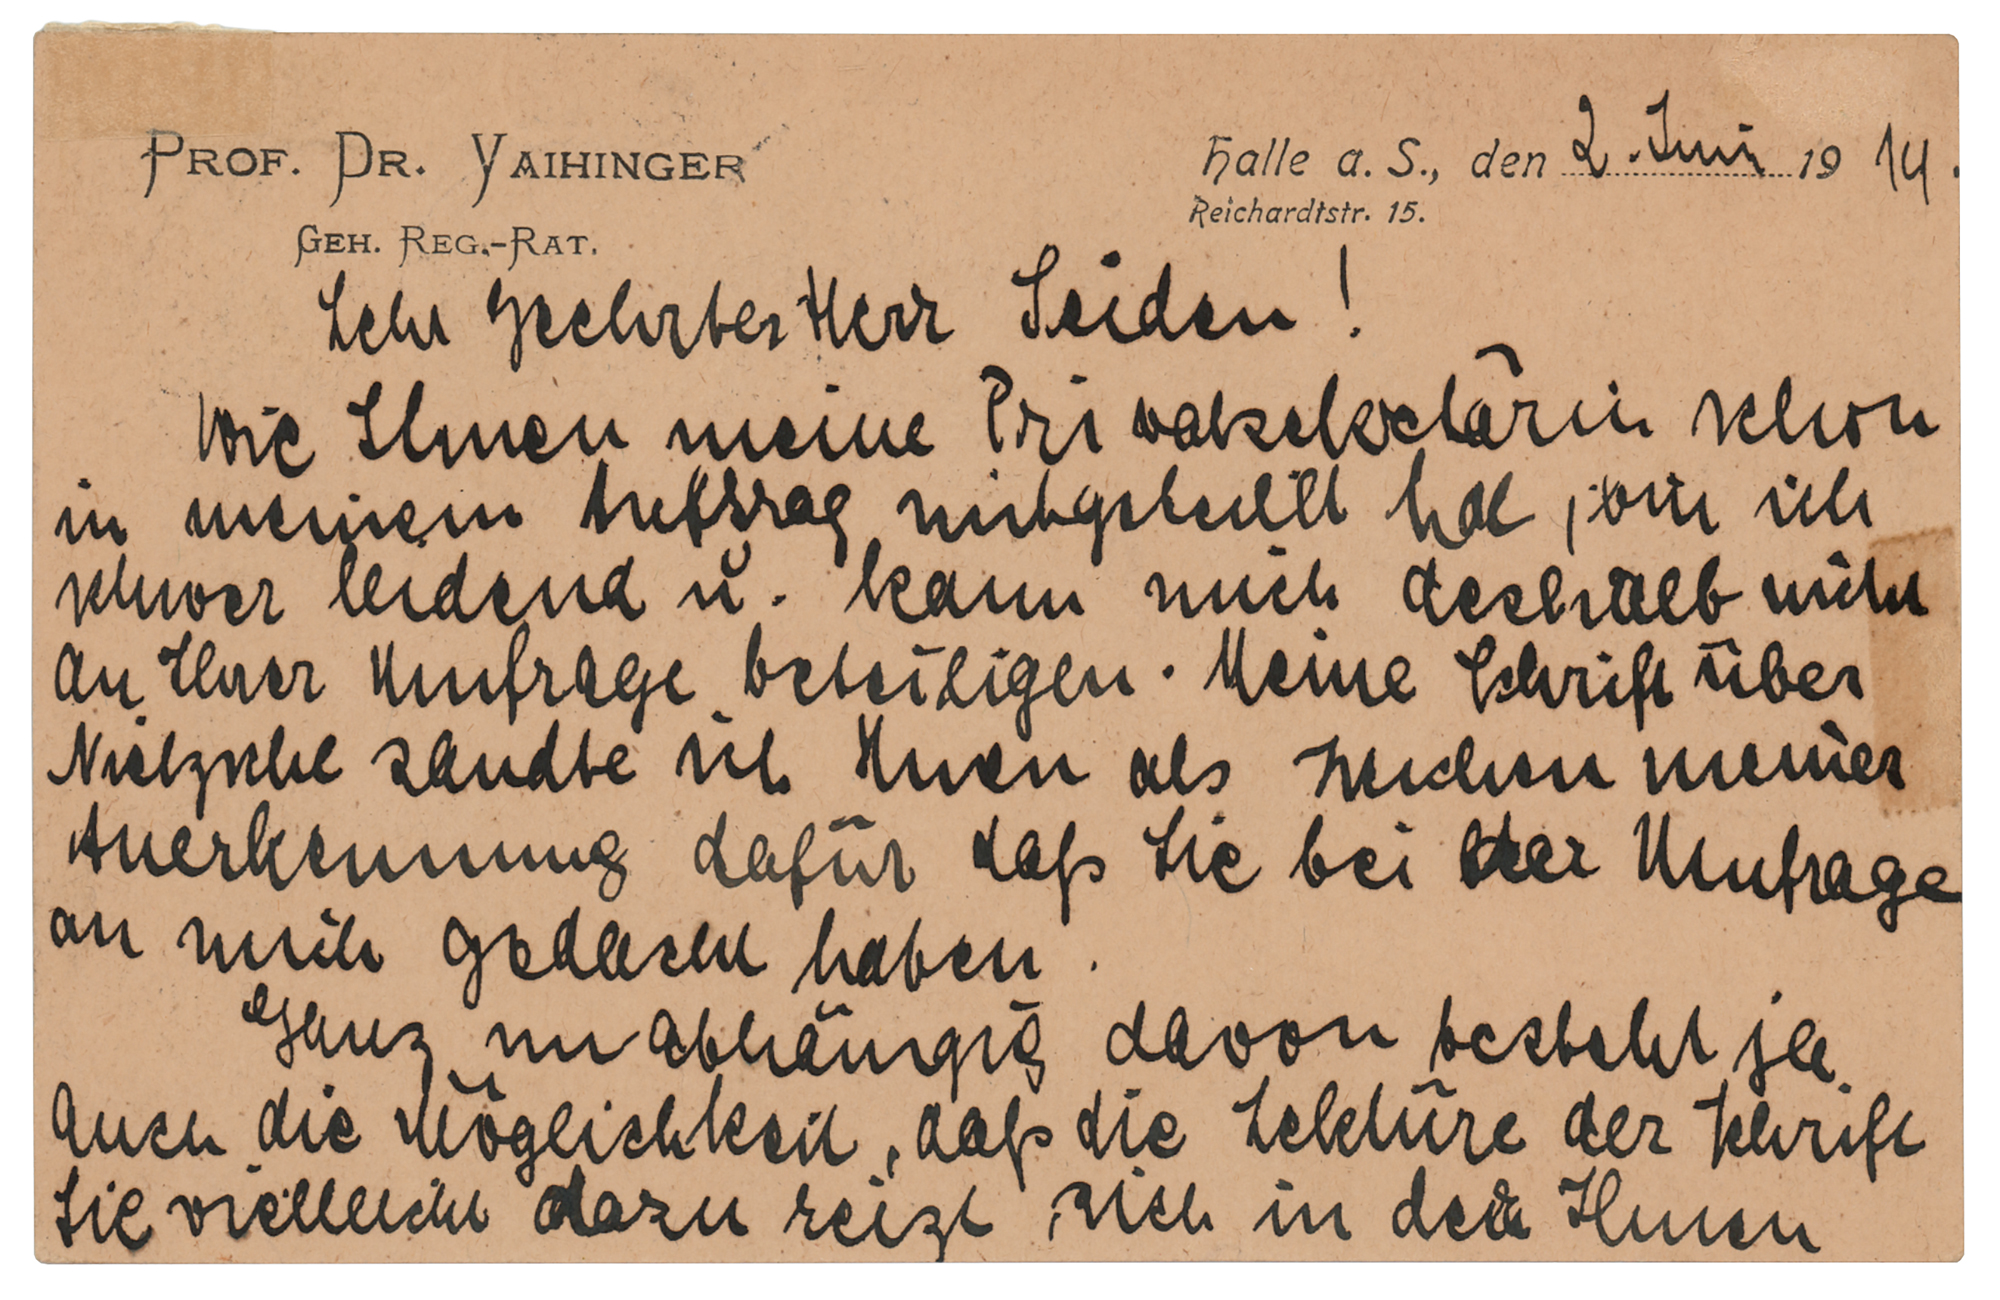 PROF. DR. VAIHINGER
GEH. REG.-RAT.
Halle a. S., den 2. Juni 1914.
Reichardtstr. 15.
Sehr geehrter Herr Seiden!
Wie Ihnen meine Privatsekretärin schon
in meinem Auftrag mitgeteilt hat, bin ich
schwer leidend u. kann mich deshalb nicht
an Ihrer Umfrage beteiligen. Meine Schrift über
Nietzsche sandte ich Ihnen als Zeichen meiner
Anerkennung dafür daß Sie bei der Umfrage
an mich gedacht haben.
Ganz unabhängig davon besteht ja
auch die Möglichkeit, daß die Lektüre der Schrift
Sie vielleicht dazu reizt, sich in der Ihnen